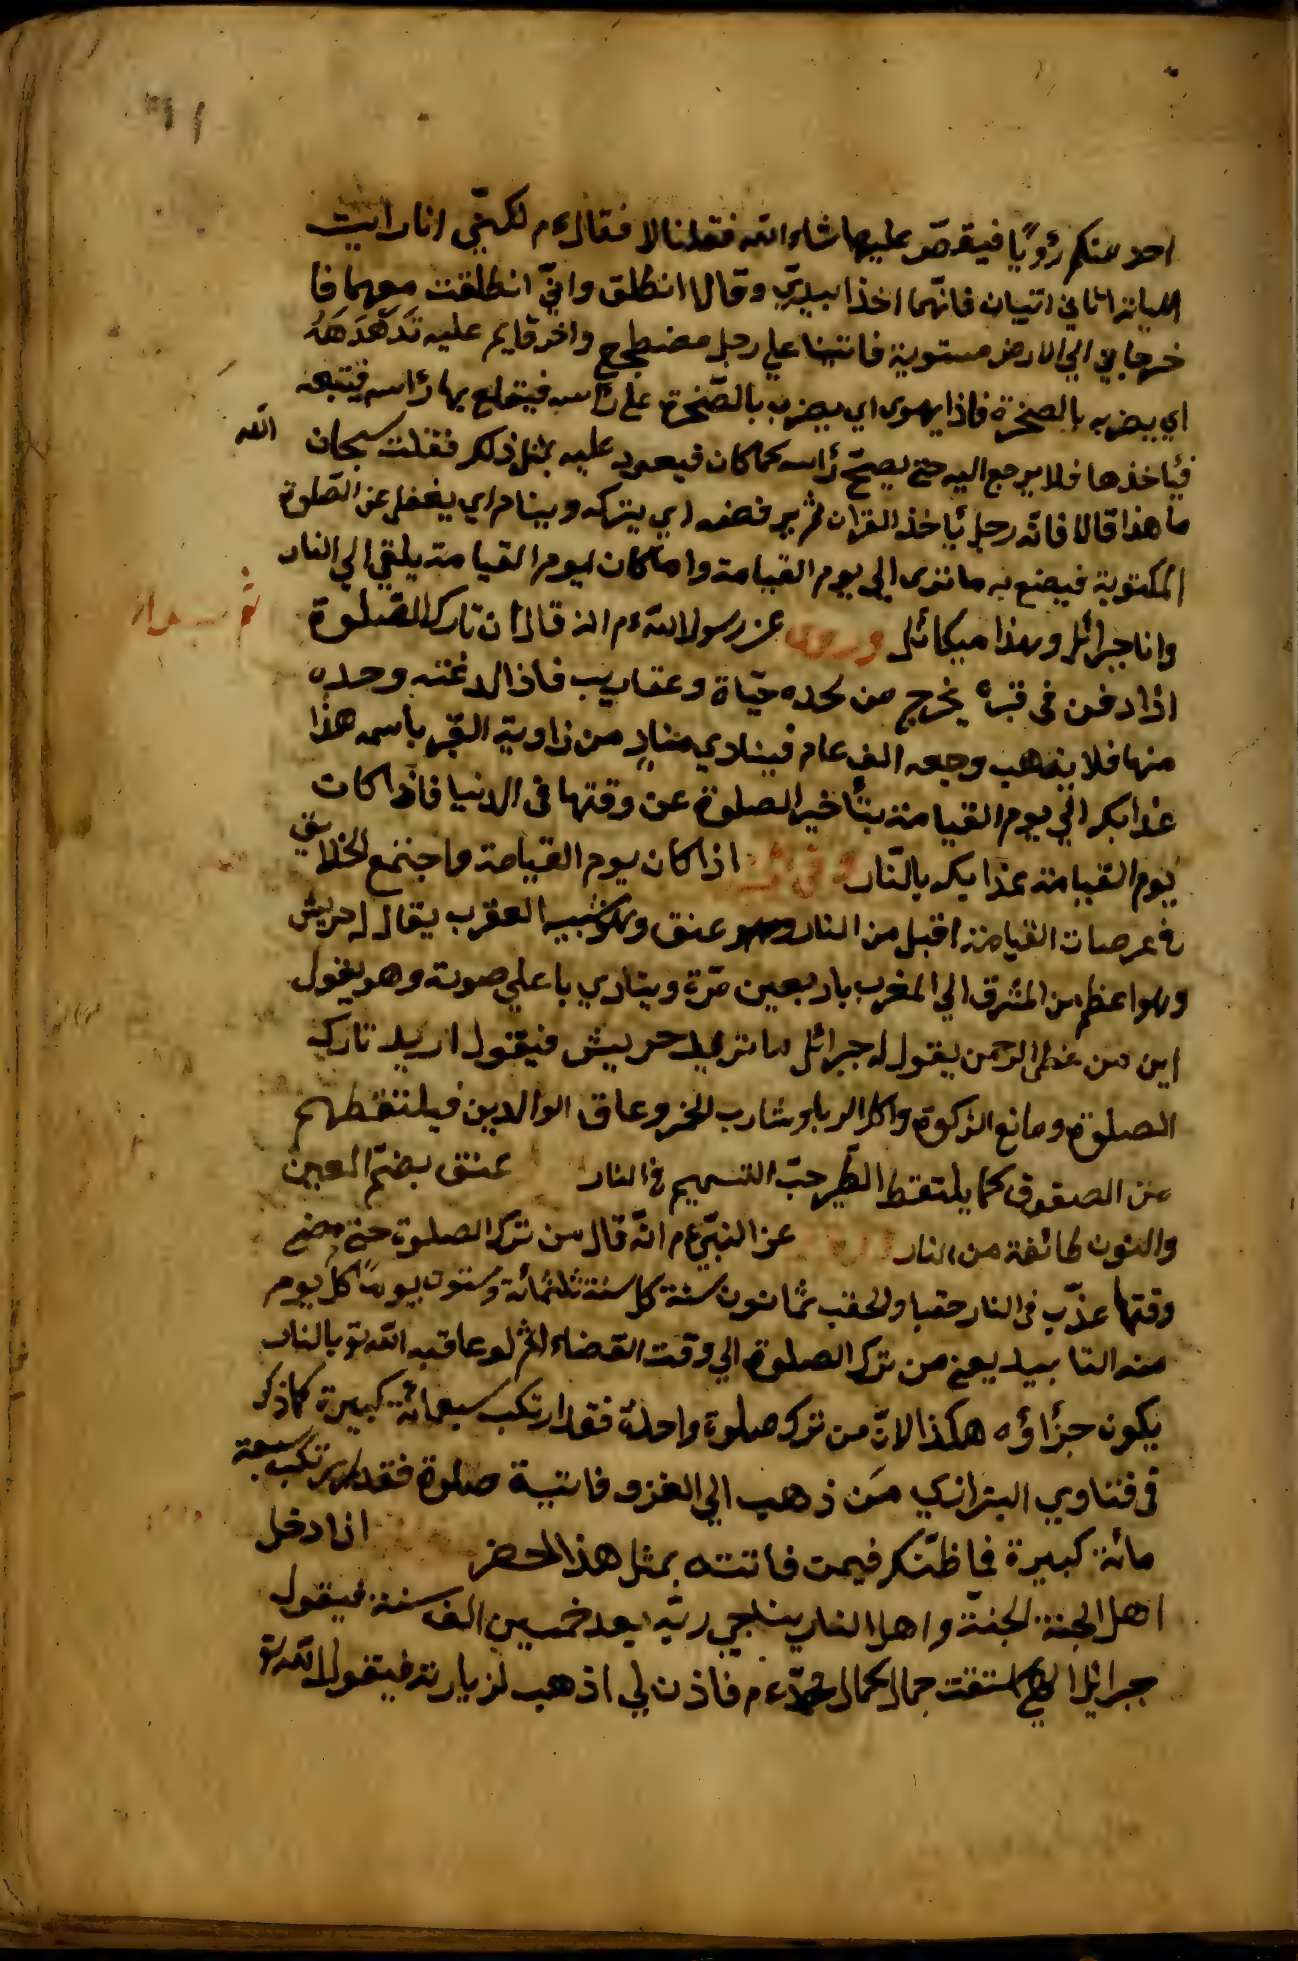 احد منكم رؤيًا فيقصّ عليها شاء الله فقلنا لا فقال ءم لكنّي انا رايت
الليلة اتاني اتيان فانّهما اخذا بيديّ وقالا انطلق وانّي انطلقت معهما فا
خرجاني الي الارض مستوية فاتينا علي رجل مضطجع واخر قايم عليه تَدَهْدَهَهُ
اي يضربه بالصخرة فاذا يهوي اي يضرب بالصّخرة علي رأسه فيقلع بها رأسه فيتبعه
فيأخذها فلا يرجع اليه حتي يصحّ رأسه كما كان فيعود عليه بمثل ذلك فقلت سبحان الله
ما هذا قالا فانّه رجل يأخذ القران ثم يرفضه اي يتركه وينام اي يغفل عن الصّلوة
المكتوبة فيصنع به ما تري الي يوم القيامة واما كان يوم القيامة يلقي الي النار
وانا جبرائل وهذا ميكائل وروي عن رسول الله ءم انه قال ان تارك الصّلوة
اذا دفن في قبره يخرج من لحده حيّاة وعقاريب فاذا لدغته وحده
منها فلا يذهب وجعه الف عام فينادي منادٍ من زاوية القبر باسمه هذا
عذابكم الي يوم القيامة بتأخير الصلوة عن وقتها في الدنيا فاذا كانت
يوم القيامة عذابكم بالنّار وفي اذا كان يوم القيامة واجتمع الخلايق
في عرصات القيامة اقبل من النار عنق وهو شبيه العقرب يقال له حريش
وهو اعظم من المشرق الي المغرب باربعين مرّة وينادي باعلي صوته وهو يقول
اين من عطي الرحمن يقول له جبرائل ما تريد حريش فيقول اريد تارك
الصلوة ومانع الزكوة واكل الربا وشارب الخمر وعاق الوالدين فيلتقطهم
عن الصفوف كما يلتقط الطّير حبّ السمسم في النار عنق بضمّ العين
والنون طائفة من النار عن النبيّ ءم انّه قال من ترك الصلوة حتي مضي
وقتها عذّب في النار حقبا والحقب ثمانون سنة كل سنة ثلثمائة وستون يومًا كل يوم
منه التابيد يعني من ترك الصلوة الي وقت القضاء اثم لو عاقبه الله تع بالنار
يكون جزاؤه هكذا لانّ من ترك صلوة واحدة فقد ارتكب سبعمائة كبيرة كما ذكر
في فتاوي البزازي من ذهب الي الغزو فاتية صلوة فقد ارتكب سبعة
مائة كبيرة فما ظنّكم فيمن فاتته بمثل هذا الحضر اذا دخل
اهل الجنة الجنّة واهل النار يناجي ربّه بعد خمسين الف سنة فيقول
جبرائل اشتقت جمال كمال محمّد ءم فاذن لي اذهب لزيارته فيقول الله تع